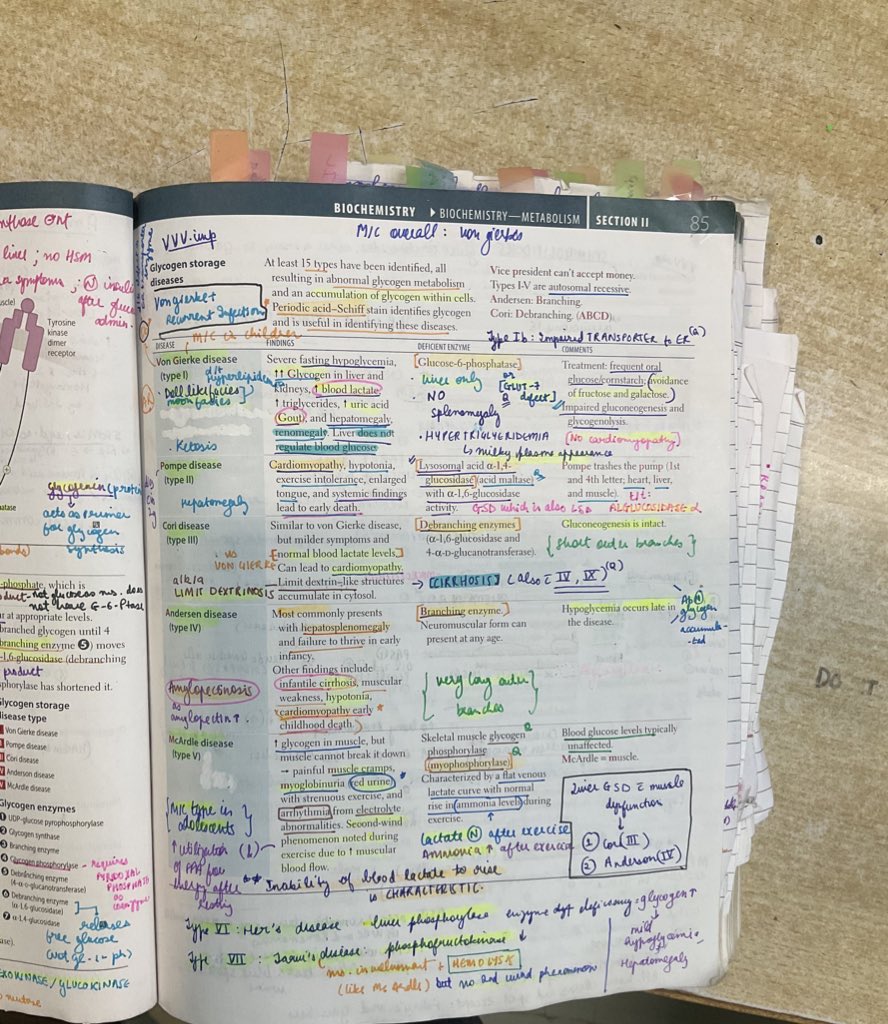 BIOCHEMISTRY ▶ BIOCHEMISTRY—METABOLISM SECTION II 85
VVV.imp
M/C overall : Von gierkes
Glycogen storage
diseases
Von gierke+
Recurrent Infection
At least 15 types have been identified, all
resulting in abnormal glycogen metabolism
and an accumulation of glycogen within cells.
Periodic acid–Schiff stain identifies glycogen
and is useful in identifying these diseases.
Vice president can't accept money.
Types I-V are autosomal recessive.
Andersen: Branching.
Cori: Debranching. (ABCD)
M/C in children
Type Ib : Impaired TRANSPORTER to ER
DISEASE FINDINGS DEFICIENT ENZYME COMMENTS
Von Gierke disease
(type I)
Hyperlipidemia
Doll like facies
moon facies
Ketosis
Severe fasting hypoglycemia,
↑↑ Glycogen in liver and
kidneys, ↑ blood lactate,
↑ triglycerides, ↑ uric acid
(Gout), and hepatomegaly,
renomegaly. Liver does not
regulate blood glucose
[Glucose-6-phosphatase]
• Liver only
or
[GLUT-7
defect]
• NO
splenomegaly
• HYPERTRIGLYERIDEMIA
↳ milky plasma appearence
Treatment: frequent oral
glucose/cornstarch; avoidance
of fructose and galactose.
Impaired gluconeogenesis and
glycogenolysis.
[No cardiomyopathy]
Pompe disease
(type II)
Hepatomegaly
Cardiomyopathy, hypotonia,
exercise intolerance, enlarged
tongue, and systemic findings
lead to early death.
Lysosomal acid α-1,4-
glucosidase (acid maltase)
with α-1,6-glucosidase
activity.
GSD which is also LSD
Pompe trashes the pump (1st
and 4th letter; heart, liver,
and muscle).
ALGLUCOSIDASE α
Cori disease
(type III)
VON GIERKE
a/k/a
LIMIT DEXTRINOSIS
Similar to von Gierke disease,
but milder symptoms and
[normal blood lactate levels.]
Can lead to cardiomyopathy.
Limit dextrin–like structures
accumulate in cytosol.
Debranching enzymes
(α-1,6-glucosidase and
4-α-d-glucanotransferase).
→ [CIRRHOSIS] (also in IV, IX)
Gluconeogenesis is intact.
{short outer branches}
Andersen disease
(type IV)
Amylopectinosis
as
amylopectin ↑
Most commonly presents
with hepatosplenomegaly
and failure to thrive in early
infancy.
Other findings include
infantile cirrhosis, muscular
weakness, hypotonia,
cardiomyopathy early
childhood death.
Branching enzyme.
Neuromuscular form can
present at any age.
{very long outer
branches}
Hypoglycemia occurs late in
the disease.
glycogen
accumula
-ted
McArdle disease
(type V)
[M/C type in
adolescents]
↑ glycogen in muscle, but
muscle cannot break it down
→ painful muscle cramps,
myoglobinuria (red urine)
with strenuous exercise, and
arrhythmia from electrolyte
abnormalities. Second-wind
phenomenon noted during
exercise due to ↑ muscular
blood flow.
Skeletal muscle glycogen
phosphorylase
(myophosphorylase).
Characterized by a flat venous
lactate curve with normal
rise in ammonia levels during
exercise.
Lactate (N) after exercise
Ammonia ↑ after exercise
Blood glucose levels typically
unaffected.
McArdle = muscle.
Liver GSD c muscle
dysfunction
↓
① Cori (III)
② Anderson (IV)
↑ utilization
of FAA for
energy after
resting
** Inability of blood lactate to rise
is CHARACTERISTIC.
Type VI : Her's disease - liver phosphorylase enzyme deficiency : glycogen ↑
mild
hypoglycemia
Hepatomegaly
Type VII : Tarui's disease : phosphofructokinase ↓
ms. involvement + HEMOLYSIS
(like Mc Ardle) but no 2nd wind phenomenon
liver ; no HSM
symptoms
Tyrosine
kinase
dimer
receptor
glycogenin (protein)
acts as primer
for glycogen
synthesis
-phosphate, which is
not have G-6-Ptase
ur at appropriate levels.
branched glycogen until 4
branching enzyme ❺) moves
-1,6-glucosidase (debranching
product
phorylase has shortened it.
Glycogen storage
disease type
Von Gierke disease
Pompe disease
Cori disease
Anderson disease
McArdle disease
Glycogen enzymes
UDP-glucose pyrophosphorylase
Glycogen synthase
Branching enzyme
Glycogen phosphorylase - requires
PYRIDOXAL
PHOSPHATE
as
coenzyme
Debranching enzyme
(4-α-d-glucanotransferase)
Debranching enzyme
(α-1,6-glucosidase)
α-1,4-glucosidase
releases
free glucose
HEXOKINASE / GLUCOKINASE
DO T